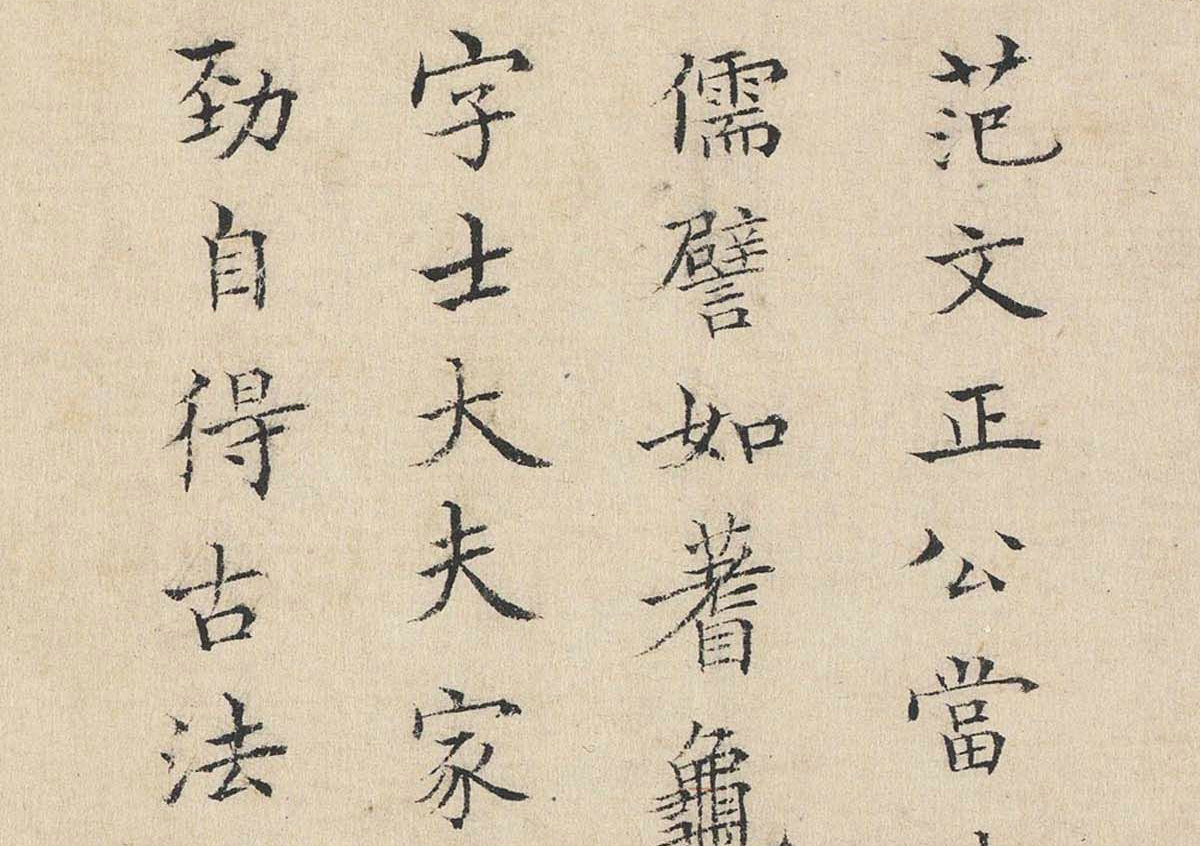 范文正公當
儒譬如蓍龜
字士大夫家
勁自得古法